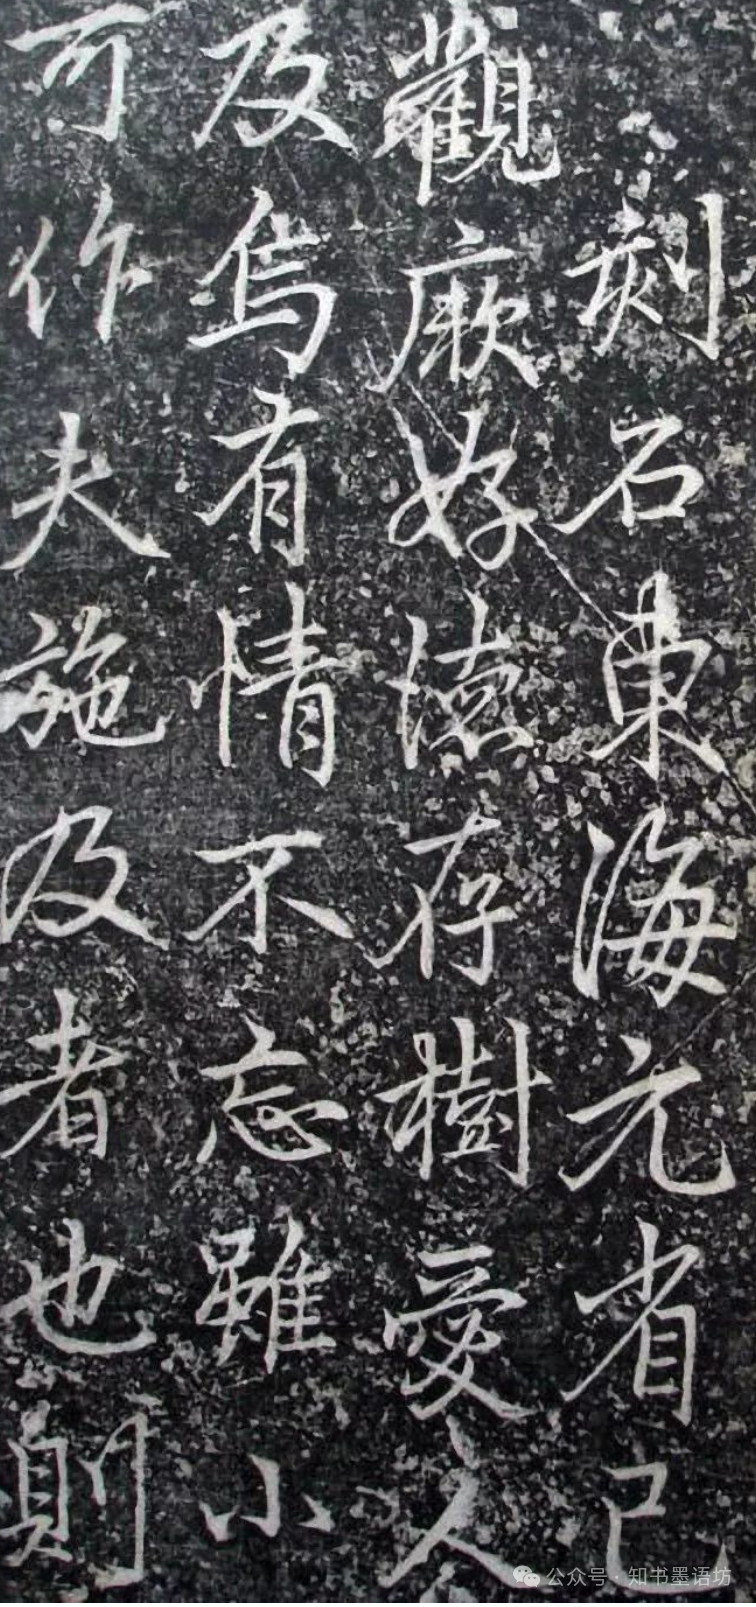 刻石東海元省己
觀厥好德存樹愛人
及焉有情不忘雖小
可作夫施及者也則
公众号·知书墨语坊